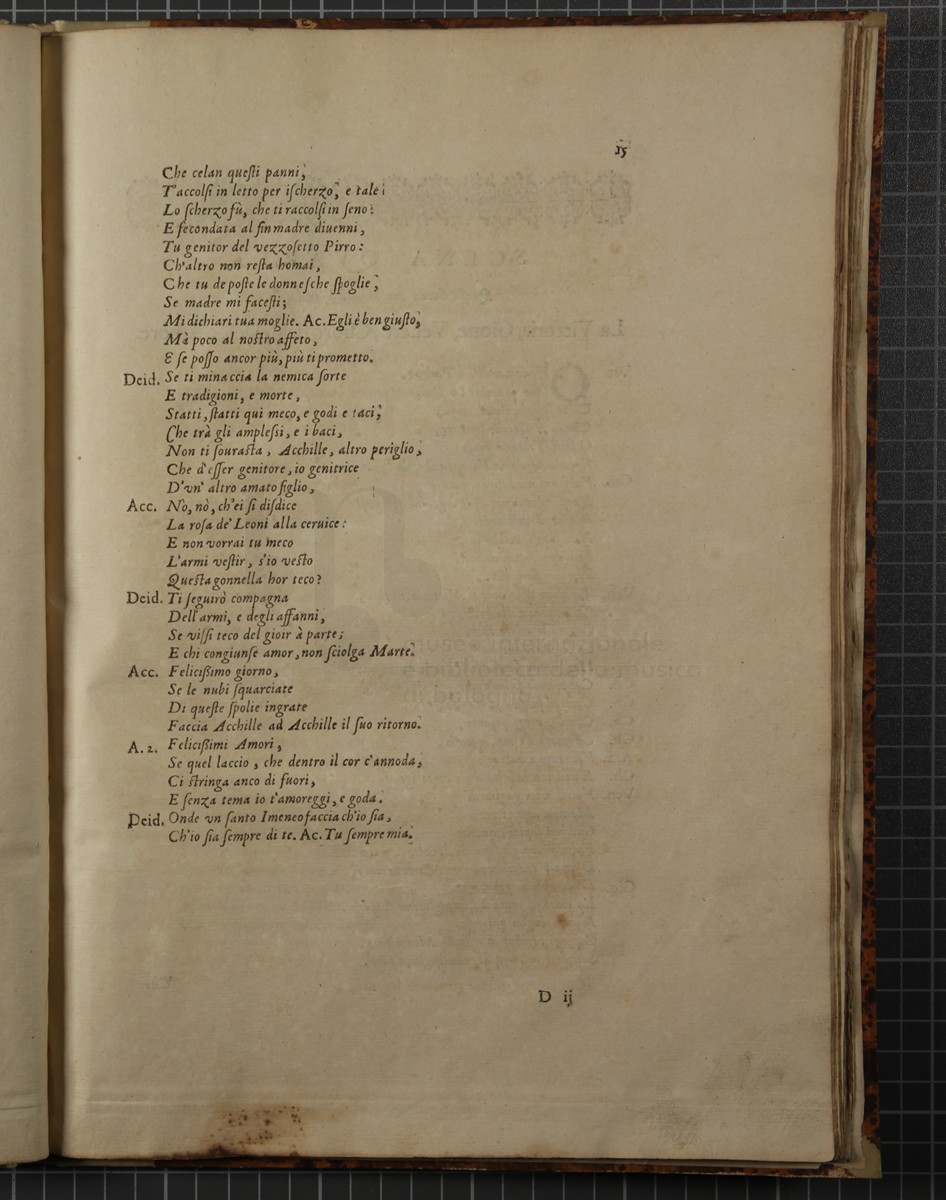 15
Che celan queſti panni,
T'accolſi in letto per iſcherzo, e tale
Lo ſcherzo fù, che ti raccolſi in ſeno:
E fecondata al fin madre diuenni,
Tu genitor del vezzoſetto Pirro:
Ch'altro non reſta homai,
Che tu depoſte le donneſche ſpoglie,
Se madre mi faceſti;
Mi dichiari tua moglie. Ac. Egli è ben giuſto,
Mà poco al noſtro affeto,
E ſe poſſo ancor più, più ti prometto.
Deid. Se ti minaccia la nemica ſorte
E tradigioni, e morte,
Statti, ſtatti qui meco, e godi e taci,
Che trà gli ampleſsi, e i baci,
Non ti ſouraſta, Acchille, altro periglio,
Che d'eſſer genitore, io genitrice
D'vn' altro amato figlio,
Acc. Nò, nò, ch'ei ſi diſdice
La roſa de' Leoni alla ceruice:
E non vorrai tu meco
L'armi veſtir, s'io veſto
Queſta gonnella hor teco?
Deid. Ti ſeguirò compagna
Dell'armi, e degli affanni,
Se viſſi teco del gioir à parte;
E chi congiunſe amor, non ſciolga Marte.
Acc. Feliciſsimo giorno,
Se le nubi ſquarciate
Di queſte ſpolie ingrate
Faccia Acchille ad Acchille il ſuo ritorno.
A. 2. Feliciſsimi Amori,
Se quel laccio, che dentro il cor c'annoda,
Ci ſtringa anco di fuori,
E ſenza tema io t'amoreggi, e goda.
Deid. Onde vn ſanto Imeneo faccia ch'io ſia,
Ch'io ſia ſempre di te. Ac. Tu ſempre mia.
D ij